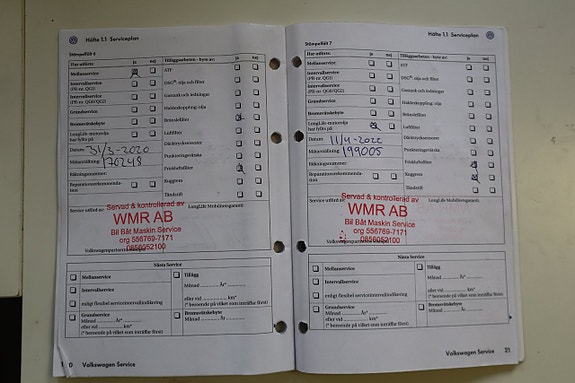 Häfte 1.1 Serviceplan
Stämpelfält 6
Har utförts: ja nej
Mellanservice
Intervallservice
(PR-nr. QG1)
Intervallservice
(PR-nr. QG0/QG2)
Grundservice
Bromsvätskebyte
LongLife-motorolja
har fyllts på
Datum: 31/3-2020
Mätarställning: 170248
Räkningsnummer:
Reparationsrekommenda-
tion
Tilläggsarbeten - byte av: ja nej
ATF
DSG®-olja och filter
Gastank och ledningar
Haldexkoppling: olja
Bränslefilter
Luftfilter
Däcktrycksensorer
Punkteringsvätska
Friskluftsfilter
Kuggrem
Tändstift
Service utförd av:
LongLife Mobilitetsgaranti
Servad & kontrollerad av
WMR AB
Bil Båt Maskin Service
org 556769-7171
0856052100
Nästa Service
Mellanservice
Intervallservice
enligt flexibel serviceintervallindikering
Grundservice
Månad .......... År*
eller vid .......... km*
(* beroende på vilket som inträffar först)
Tillägg
Månad .......... År*
eller vid .......... km*
(* beroende på vilket som inträffar först)
Bromsvätskebyte
Månad .......... År
Volkswagen Service
Häfte 1.1 Serviceplan
Stämpelfält 7
Har utförts: ja nej
Mellanservice
Intervallservice
(PR-nr. QG1)
Intervallservice
(PR-nr. QG0/QG2)
Grundservice
Bromsvätskebyte
LongLife-motorolja
har fyllts på
Datum: 11/4-2022
Mätarställning: 199005
Räkningsnummer:
Reparationsrekommenda-
tion
Tilläggsarbeten - byte av: ja nej
ATF
DSG®-olja och filter
Gastank och ledningar
Haldexkoppling: olja
Bränslefilter
Luftfilter
Däcktrycksensorer
Punkteringsvätska
Friskluftsfilter
Kuggrem
Tändstift
Service utförd av:
LongLife Mobilitetsgaranti
Servad & kontrollerad av
WMR AB
Bil Båt Maskin Service
org 556769-7171
0856052100
Nästa Service
Mellanservice
Intervallservice
enligt flexibel serviceintervallindikering
Grundservice
Månad .......... År*
eller vid .......... km*
(* beroende på vilket som inträffar först)
Tillägg
Månad .......... År*
eller vid .......... km*
(* beroende på vilket som inträffar först)
Bromsvätskebyte
Månad .......... År
Volkswagen Service 21